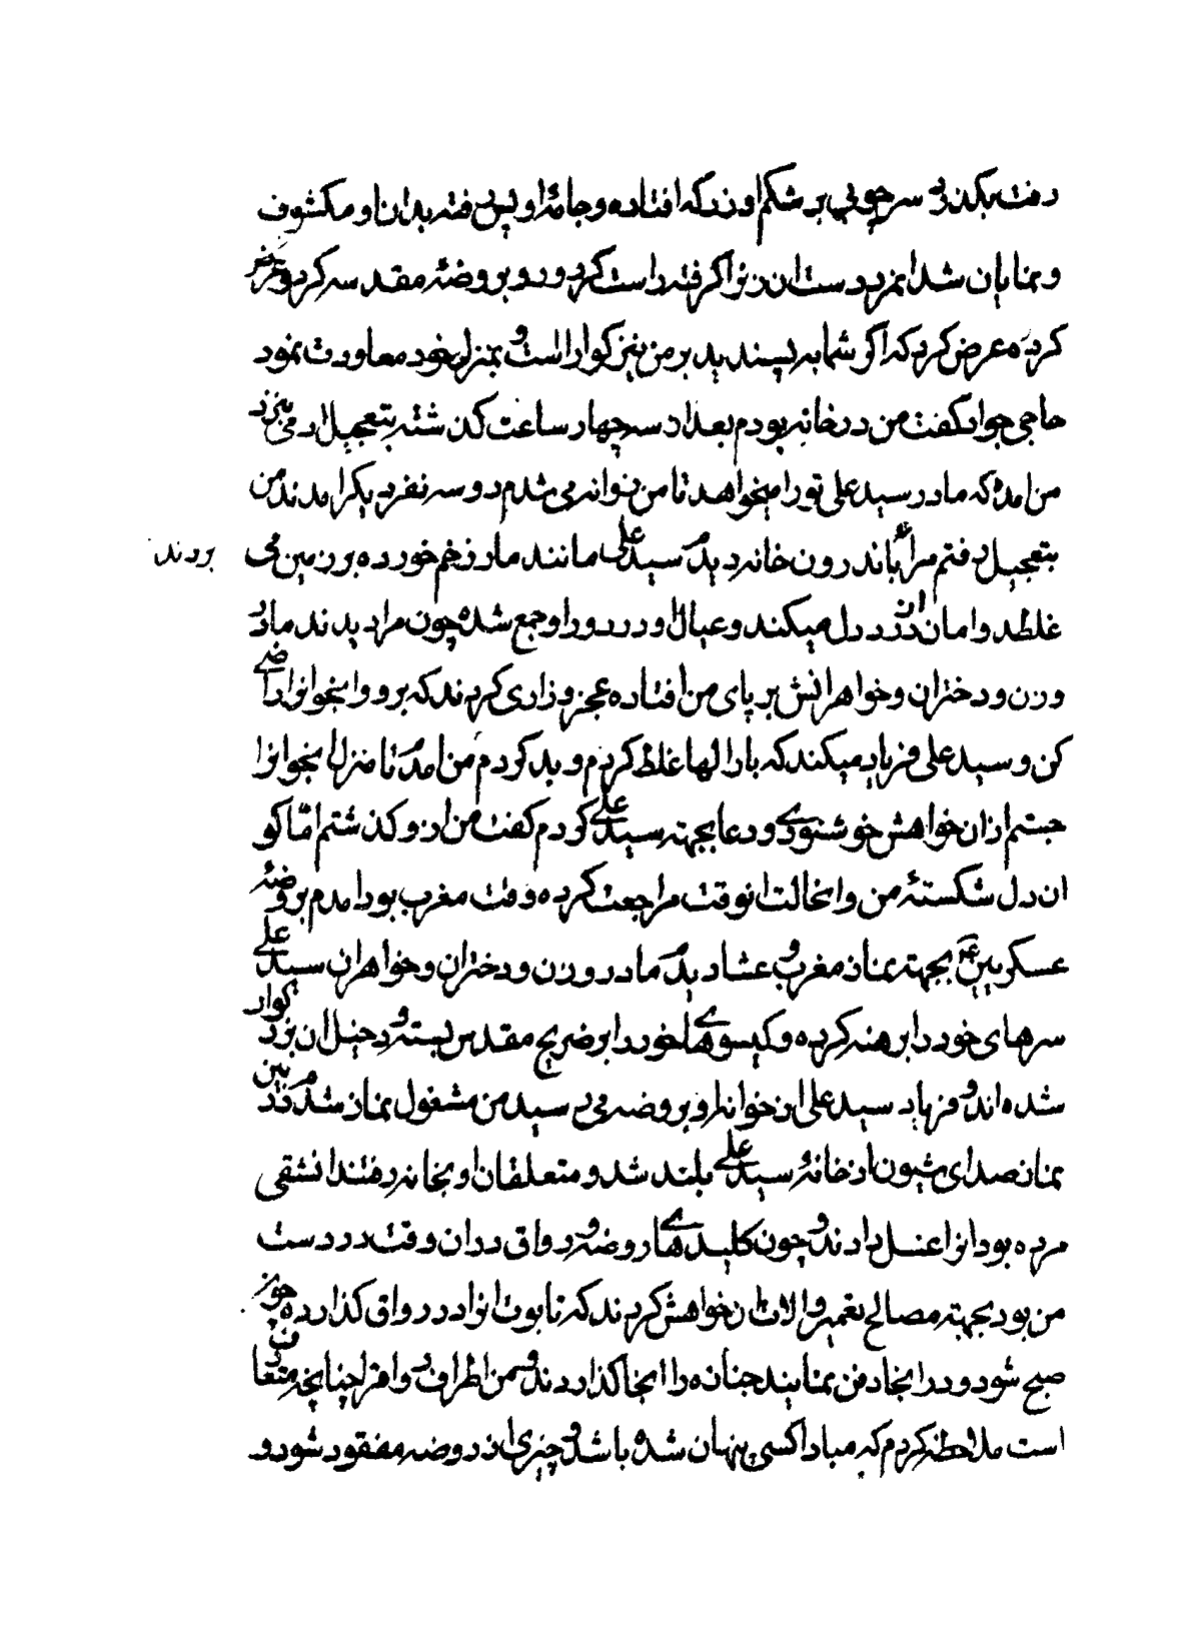 رفت یکدفعه سر چوبی بر شکم او زد که افتاده و جامهٔ او پس رفته بدن او مکشوف
و نمایان شد انمرد دست ان زنرا گرفته راست کرد و رو بروضهٔ مقدسه کرد و عرض
کرده عرض کرد که اگر شما به پسندید بر من نیز گوارا است و بمنزل خود معاودت نمود
حاجی جواد گفت من در خانه بودم بعد از سه چهار ساعت گذشته بتعجیل در میزند
من امده که مادر سید علی تو را میخواهد تا من روانه می شدم دو سه نفر دیگر امدند من
بتعجیل رفتم مرا باندرون خانه بردند دیدم سید علی مانند مار زخم خورده بر زمین می
غلطد و امان از درد دل میکند و عیال او در دور او جمع شده چون مرا دیدند مادر
و زن و دختران و خواهرانش بر پای من افتاده عجز و زاری کردند که برو و اینجوانرا راضی
کن و سید علی فریاد میکند که بار الها غلط کردم و بد کردم من امدم تا منزل انجوانرا
جستم از ان خواهش خوشنودی و دعا بجهته سید علی کردم گفت من از او گذشتم اما کو
ان دل شکستهٔ من و انحالت انوقت مراجعت کرده وقت مغرب بود امدم بروضهٔ
عسکریین ع بجهته نماز مغرب و عشا دیدم مادر و زن و دختران و خواهران سید علی
سرهای خود را برهنه کرده و گیسوهای خود را بر ضریح مقدس بسته و دخیل ان بزرگوار
شده اند و فریاد سید علی از خانه او بروضه می رسید من مشغول نماز شدم در بین
نماز صدای شیون از خانهٔ سید علی بلند شد و متعلقان او بخانه رفتند انشقی
مرده بود او را غسل دادند و چون کلیدهای روضه و رواق در ان وقت در دست
من بود بجهته مصالح تعمیر و الات ان خواهش کردند که تابوت او را در رواق گذارده چون
صبح شود و در انجا دفن نمایند جنازه را انجا گذاردند و من اطراف رواق را چنانچه متعارف
است ملاحظه کردم که مبادا کسی پنهان شده باشد و چیزی از روضه مفقود شود و